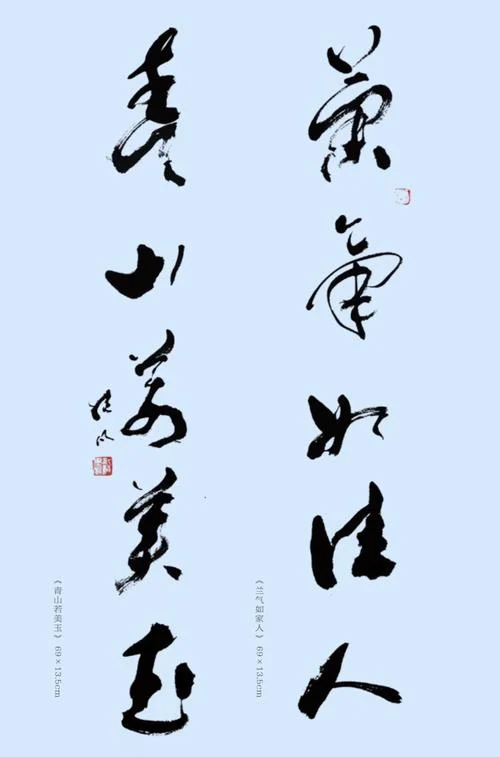 蘭氣如佳人
《兰气如家人》69×13.5cm
青山若美玉
《青山若美玉》69×13.5cm